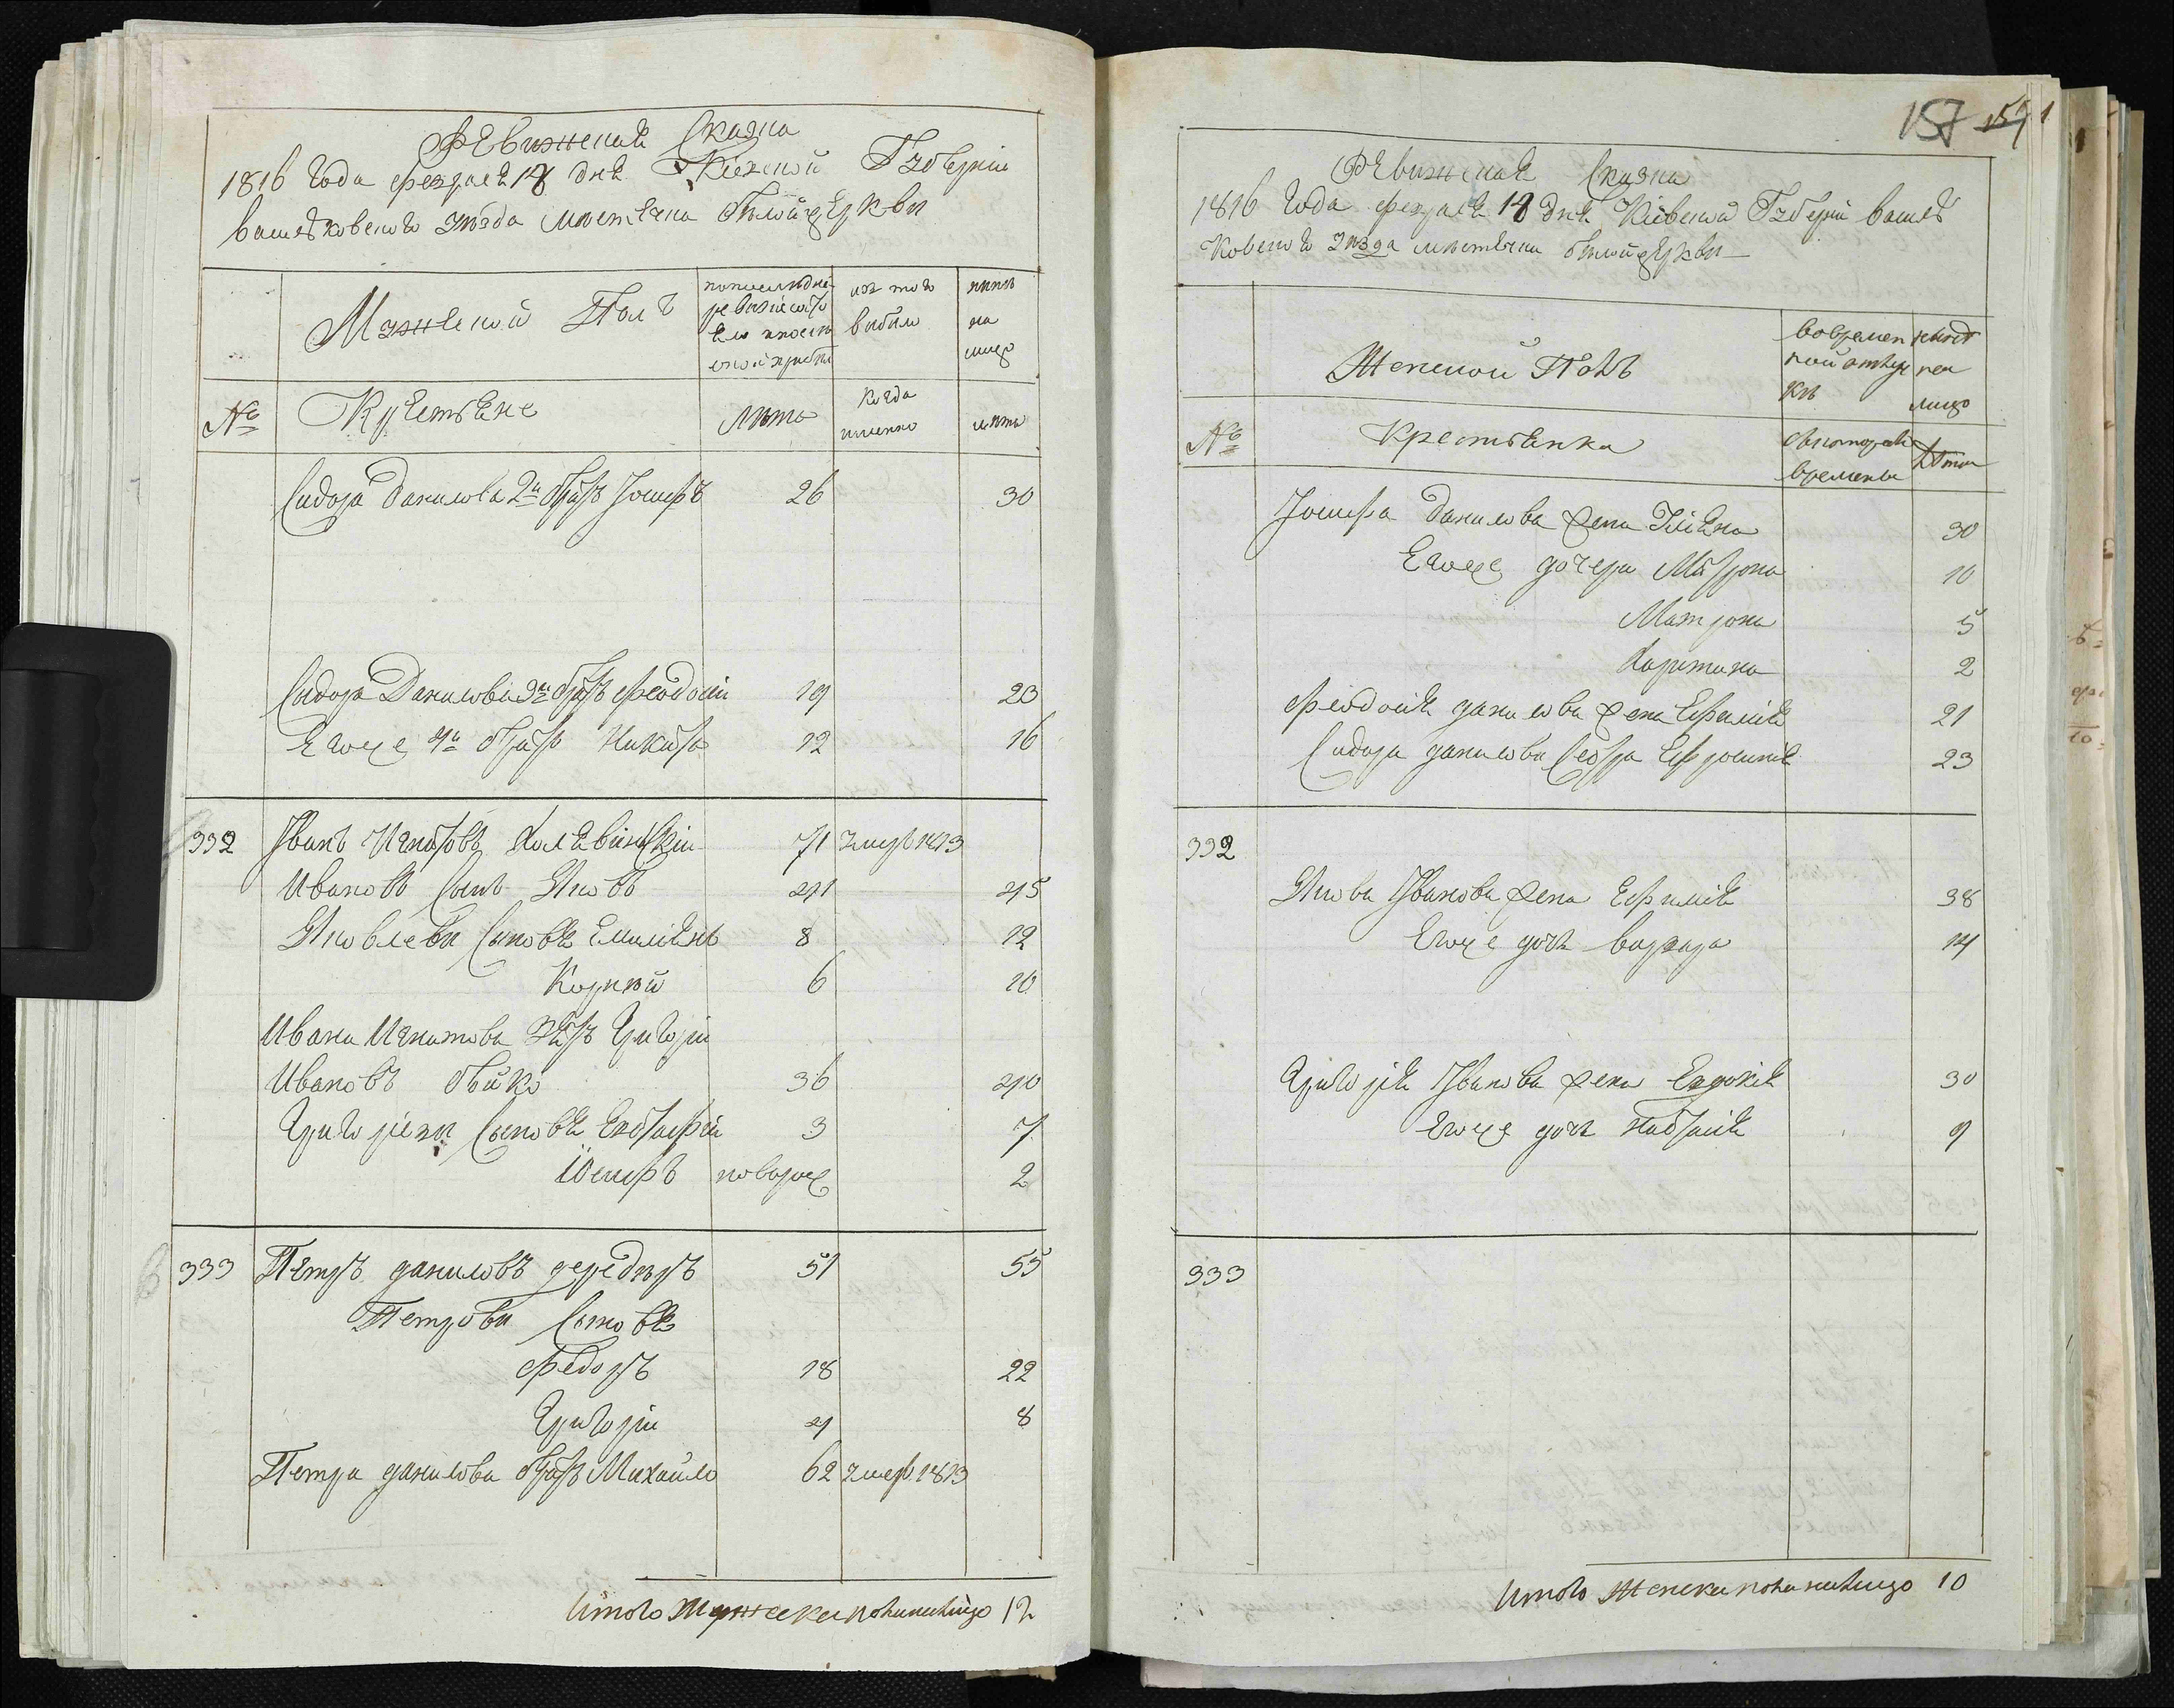 Ревижская Сказка
1816 года февраля 18 дня Киевской Губернии
васильковского уезда местечка белойцеркви
Мужеской Полъ
по последней ревизии состояло и после оной прибыло
изъ того выбыло
ныне на лицо
№ Крестьяне
лета
когда именно
лета
Сидора данилова 2й братъ Іосифъ 26 30
Сидора Данилова 3й братъ феодосій 19 23
Егоже 4й братъ Никита 12 16
332 Іванъ Игнатовъ 71 умеръ 1813
Ивановъ Сынъ Яковъ 41 45
Яковлеви Сыновя Емилянъ 8 12
Корней 6 10
Ивана Игнатова зять Григорій
Ивановъ бойко 36 40
Григоріеви Сыновя Евстафій 3 7
Юсифъ новорож 2
333 Петръ даниловъ 51 55
Петрови Сыновя
Федоръ 18 22
Григорій 4 8
Петра данилова братъ Михайло 62 умеръ 1813
Итого Мужеска пола налицо 12
157 154
Ревижская Сказка
1816 года февраля 18 дня Кіевской Губерніи василь
ковского уезда местечка белойцеркви
Женской Полъ
во временной отлучке
ныне на лицо
№ Крестянки
съ которого времени
лета
Іосифа данилова жена Уліяна 30
Егоже дочери Матрона 10
Матрона 5
Харитина 2
феодосія данилова жена Ефимія 21
Сидора данилова Сестра Ефросинія 23
332
Якова Іванова жена Ефимія 38
Егоже дочь варвара 14
Григорія Іванова жена Евдокія 30
Егоже дочь Настасія 9
333
Итого Женска пола налицо 10